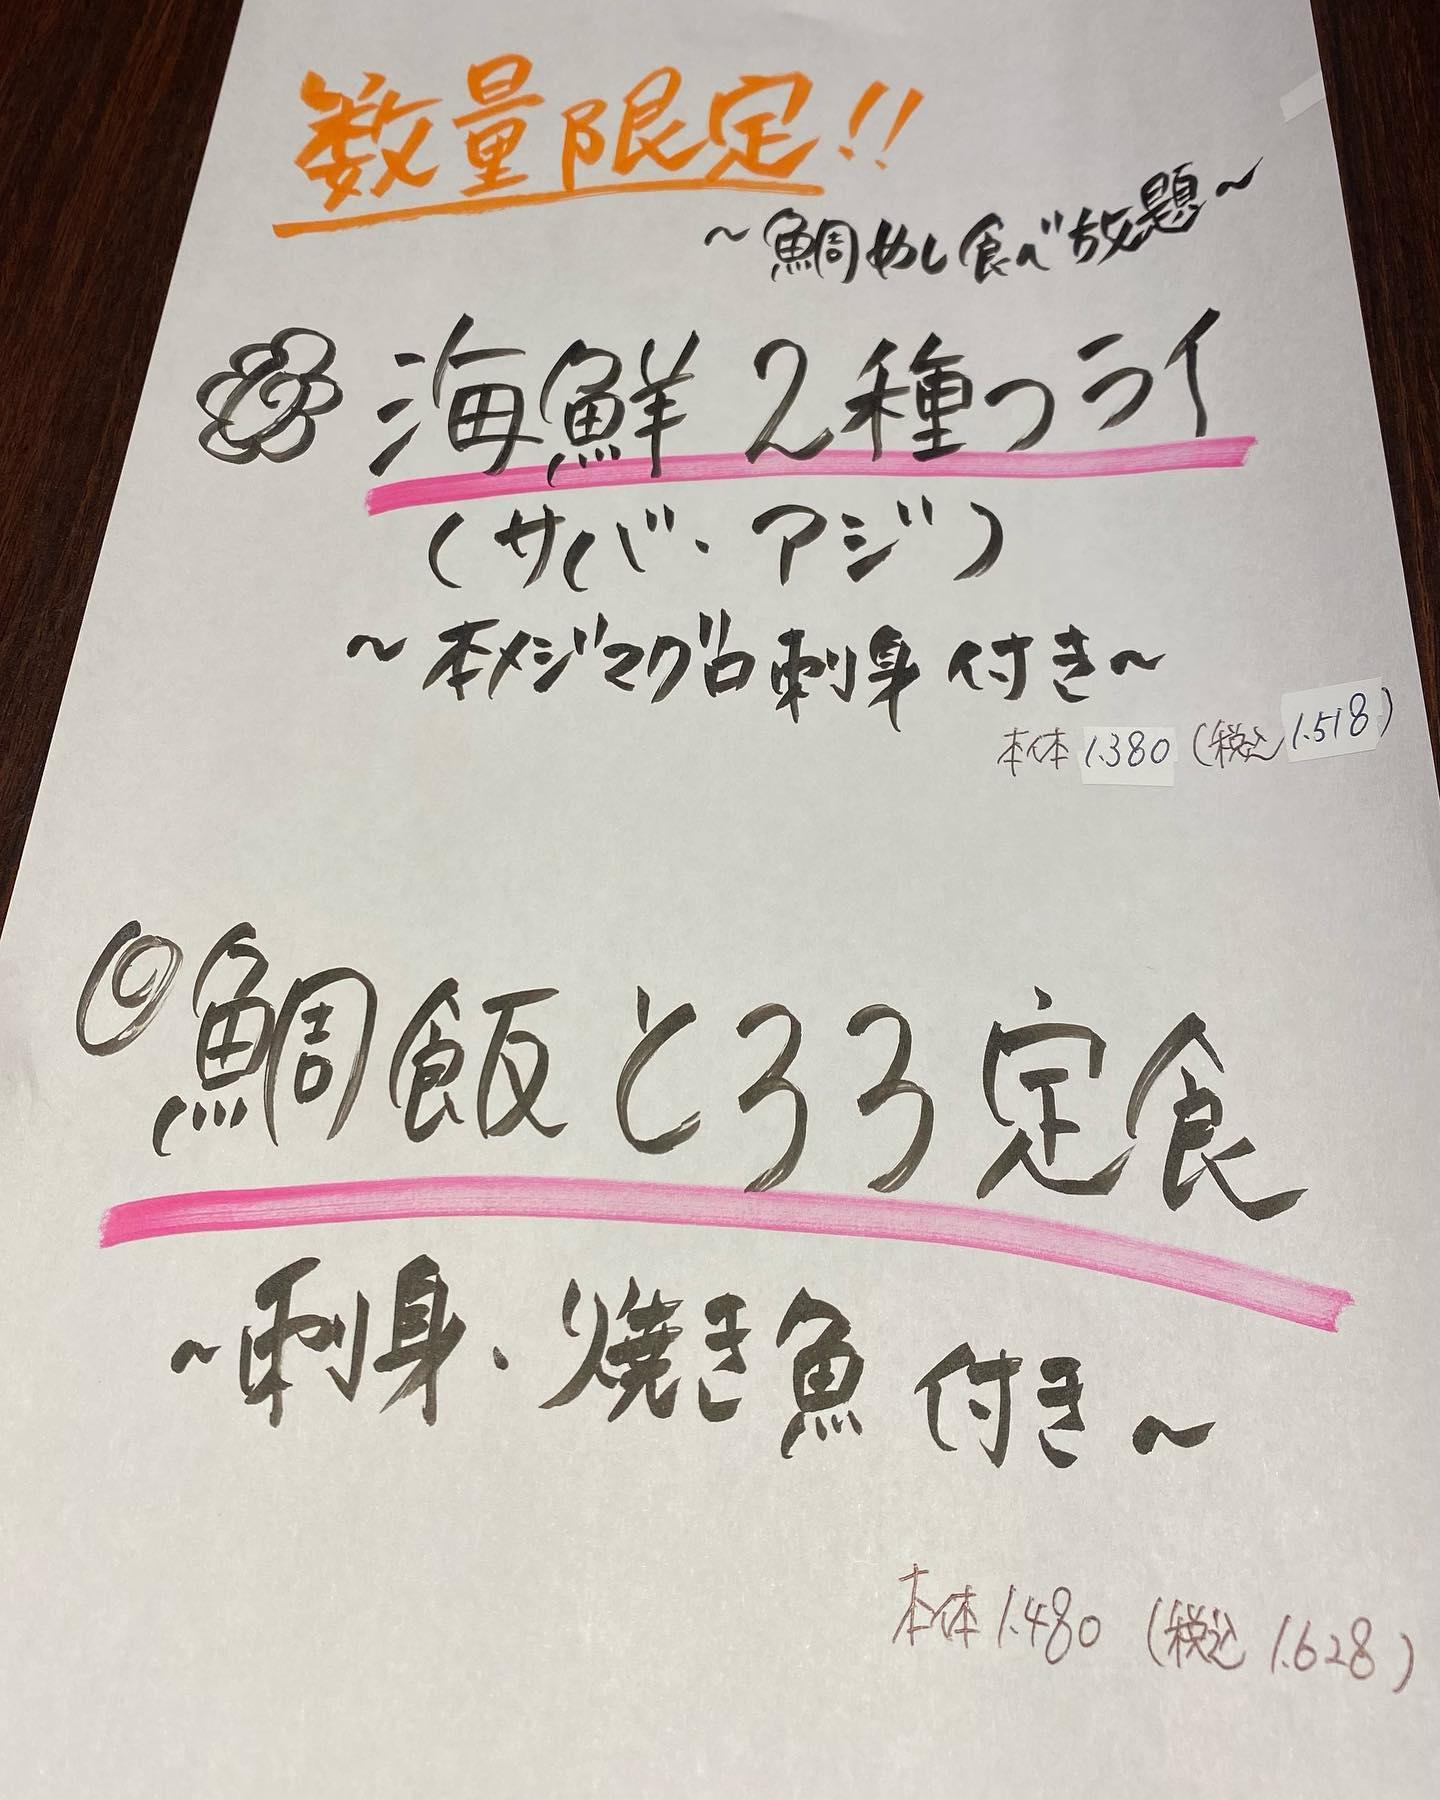 数量限定!!
~鯛めし食べ放題~
海鮮2種フライ
(サバ・アジ)
~本メジマグロ刺身付き~
本体1.380(税込1.518)
◎鯛飯とろろ定食
~刺身・焼き魚付き~
本体1.480(税込1.628)